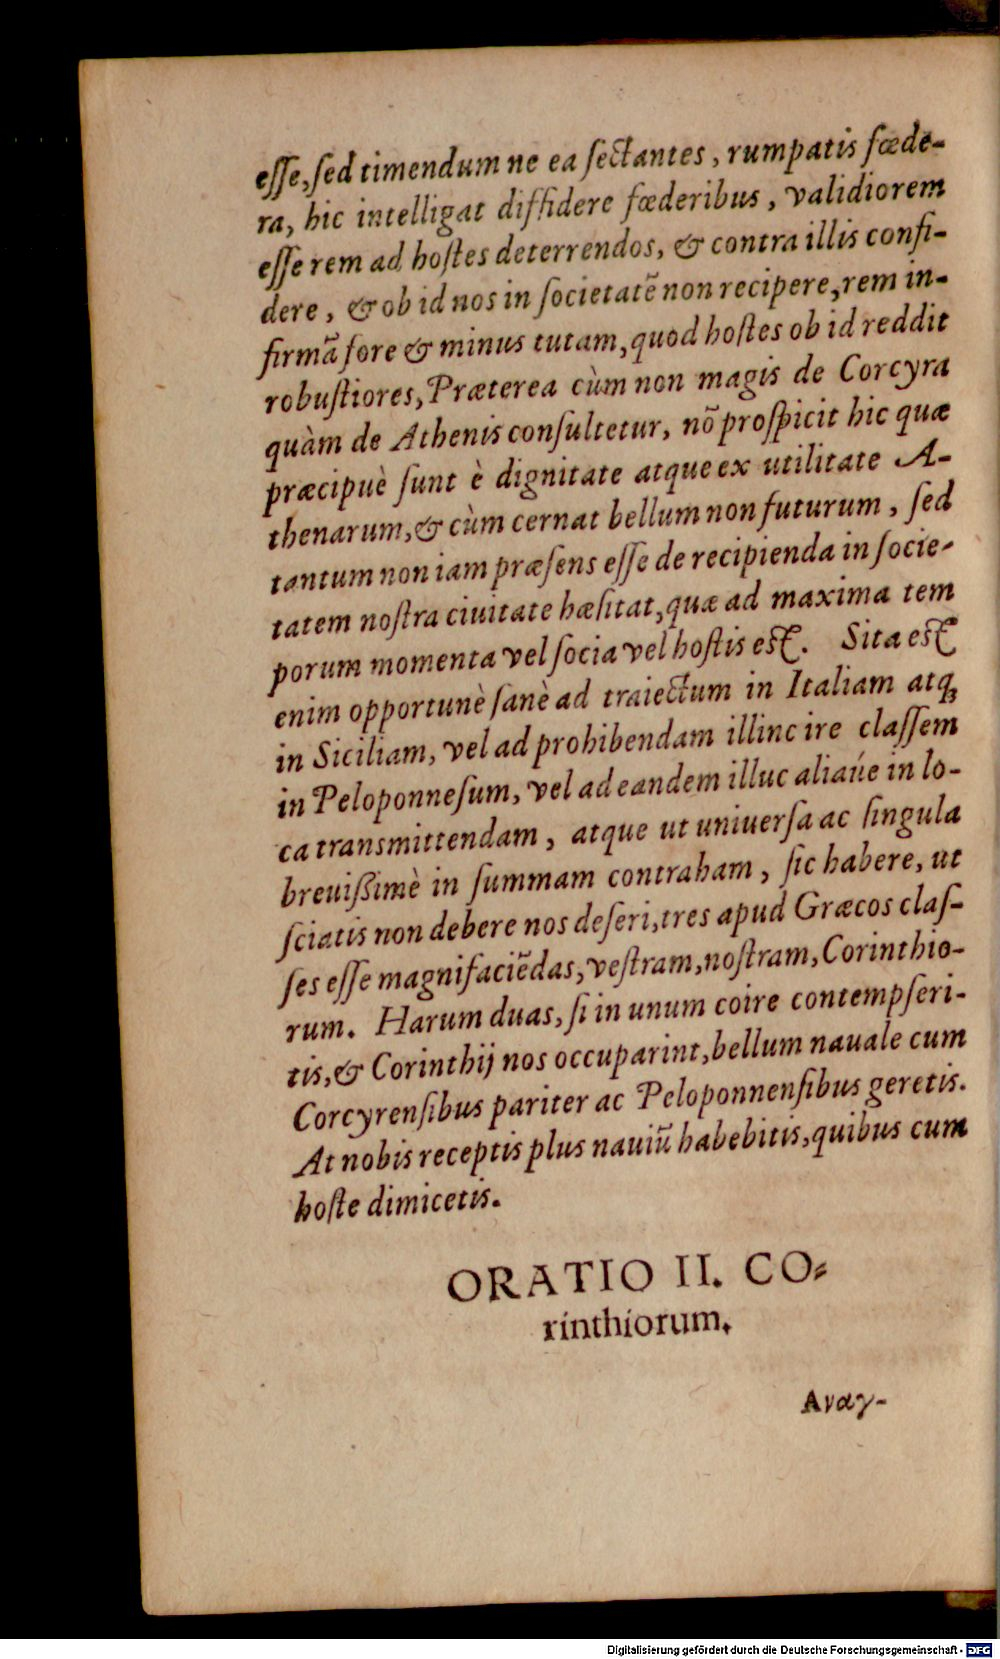 esse, sed timendum ne ea sectantes, rumpatis fœde-
ra, hic intelligat diffidere fœderibus, validiorem
esse rem ad hostes deterrendos, & contra illis confi-
dere, & ob id nos in societatẽ non recipere, rem in-
firmã fore & minus tutam, quod hostes ob id reddit
robustiores, Præterea cùm non magis de Corcyra
quàm de Athenis consultetur, nõ prospicit hic quæ
præcipuè sunt è dignitate atque ex utilitate A-
thenarum, & cùm cernat bellum non futurum, sed
tantum non iam præsens esse de recipienda in socie-
tatem nostra ciuitate hæsitat, quæ ad maxima tem
porum momenta vel socia vel hostis est. Sita est
enim opportunè sanè ad traiectum in Italiam atq́
in Siciliam, vel ad prohibendam illinc ire classem
in Peloponnesum, vel ad eandem illuc aliaúe in lo-
ca transmittendam, atque ut uniuersa ac singula
breuißimè in summam contraham, sic habere, ut
sciatis non debere nos deseri, tres apud Græcos clas-
ses esse magnifaciẽdas, vestram, nostram, Corinthio-
rum. Harum duas, si in unum coire contempseri-
tis, & Corinthij nos occuparint, bellum nauale cum
Corcyrensibus pariter ac Peloponnensibus geretis.
At nobis receptis plus nauiũ habebitis, quibus cum
hoste dimicetis.
ORATIO II. CO-
rinthiorum.
Αναγ-
Digitalisierung gefördert durch die Deutsche Forschungsgemeinschaft - DFG